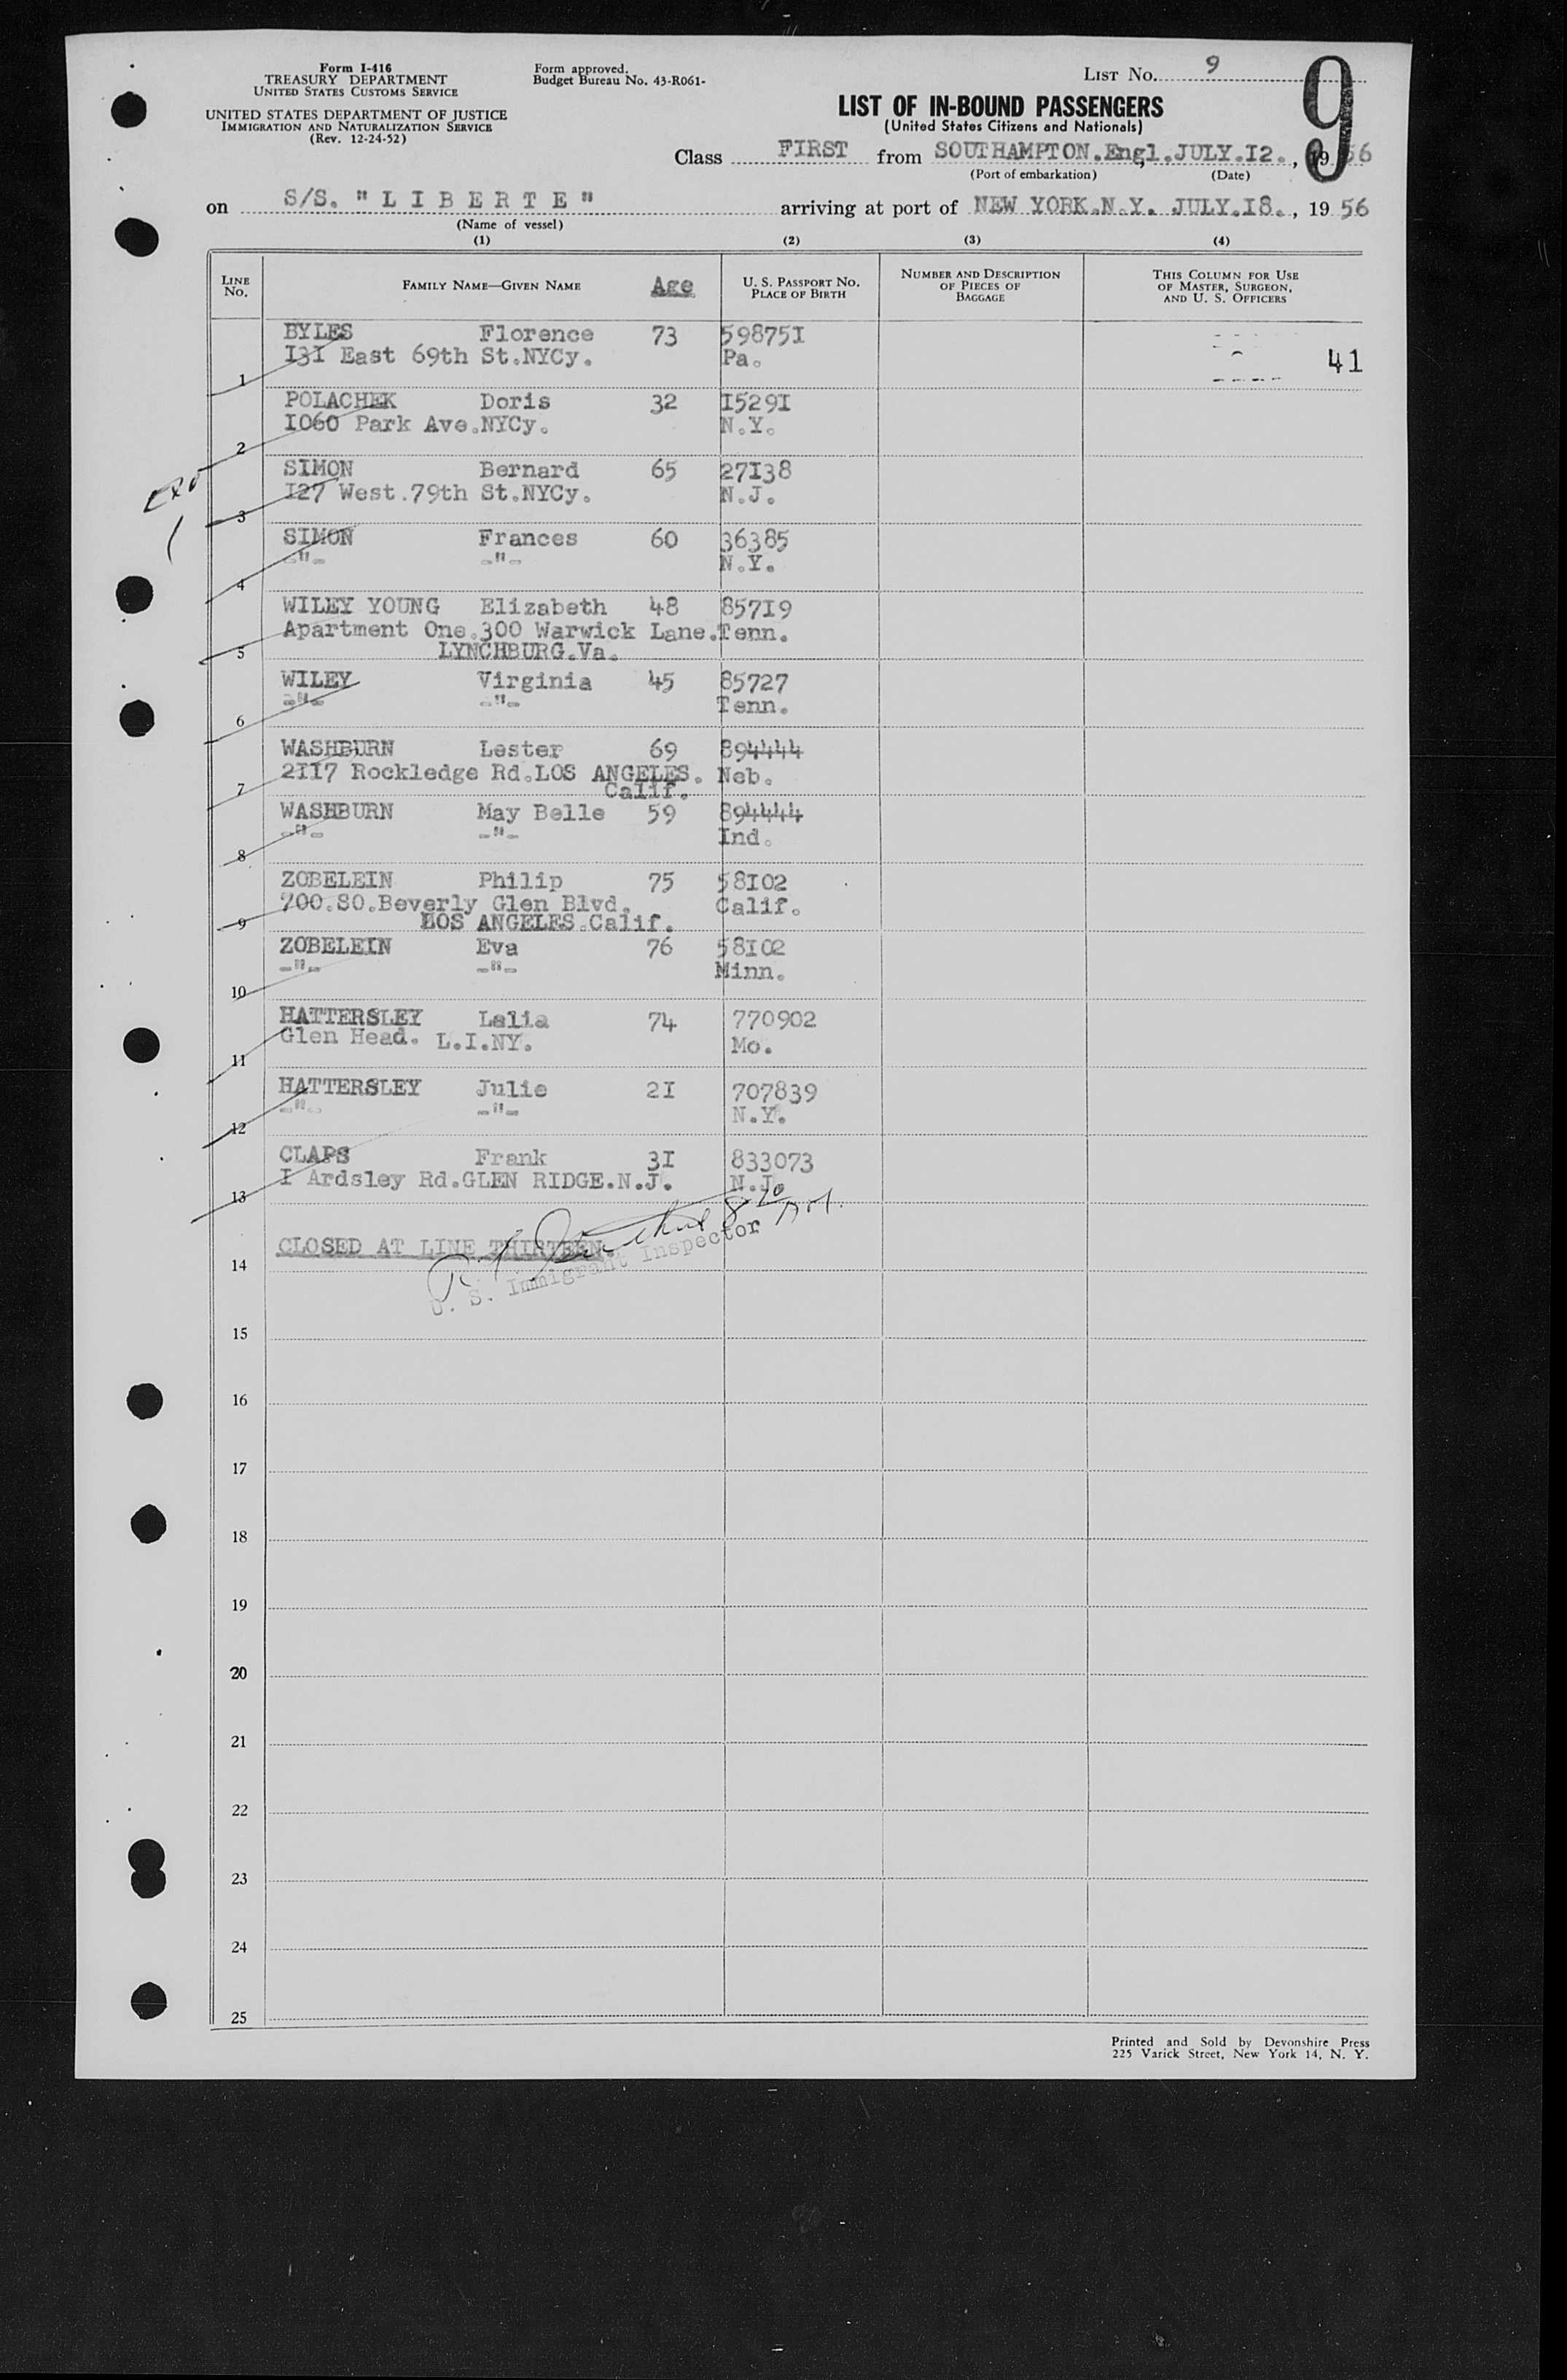 Form I-416
TREASURY DEPARTMENT
UNITED STATES CUSTOMS SERVICE
UNITED STATES DEPARTMENT OF JUSTICE
IMMIGRATION AND NATURALIZATION SERVICE
(Rev. 12-24-52)
Form approved.
Budget Bureau No. 43-R061-
LIST No. 9
9
LIST OF IN-BOUND PASSENGERS
(United States Citizens and Nationals)
Class FIRST from SOUTHAMPTON.Engl.JULY.I2., 1956
(Port of embarkation) (Date)
on S/S. "LIBERTE" arriving at port of NEW YORK.N.Y. JULY.I8., 1956
(Name of vessel)
(1) (2) (3) (4)
LINE No. FAMILY NAME—GIVEN NAME Age U. S. PASSPORT NO. PLACE OF BIRTH NUMBER AND DESCRIPTION OF PIECES OF BAGGAGE THIS COLUMN FOR USE OF MASTER, SURGEON, AND U. S. OFFICERS
BYLES Florence 73 59875I
I3I East 69th St.NYCy. Pa. 41
1
POLACHEK Doris 32 I529I
I060 Park Ave.NYCy. N.Y.
2
SIMON Bernard 65 27I38
I27 West.79th St.NYCy. N.J.
3
SIMON Frances 60 36385
-"- -"- N.Y.
4
WILEY YOUNG Elizabeth 48 857I9
Apartment One.300 Warwick Lane.Tenn.
5 LYNCHBURG.Va.
WILEY Virginia 45 85727
-"- -"- Tenn.
6
WASHBURN Lester 69 894444
2II7 Rockledge Rd.LOS ANGELES. Neb.
7 Calif.
WASHBURN May Belle 59 894444
-"- -"- Ind.
8
ZOBELEIN Philip 75 58I02
700.SO.Beverly Glen Blvd. Calif.
9 LOS ANGELES.Calif.
ZOBELEIN Eva 76 58I02
-"- -"- Minn.
10
HATTERSLEY Lelia 74 770902
Glen Head. L.I.NY. Mo.
11
HATTERSLEY Julie 2I 707839
-"- -"- N.Y.
12
CLAPS Frank 3I 833073
I Ardsley Rd.GLEN RIDGE.N.J. N.J.
13
CLOSED AT LINE THIRTEEN.
U. S. Immigrant Inspector
14
15
16
17
18
19
20
21
22
23
24
25
Printed and Sold by Devonshire Press
225 Varick Street, New York 14, N. Y.